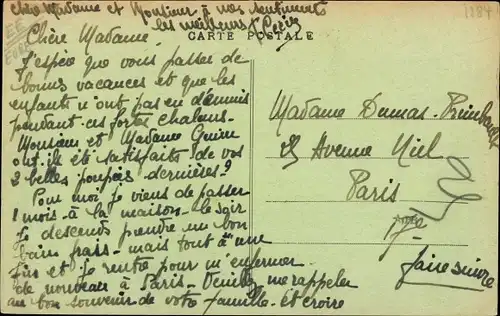 chère Madame et Monsieur à nos sentiments
les meilleurs
CARTE POSTALE
1184
Chère Madame
J'espère que vous passez de
bonnes vacances et que les
enfants n'ont pas eu d'ennuis
pendant ces fortes chaleurs.
Monsieur et Madame
ont ils été satisfaits de vos
2 belles poupées dernières?
Pour moi je viens de passer
1 mois à la maison - le soir
Je descends prendre un bon
bain frais - mais tout à une
fin et je rentre pour m'enfermer
de nouveau à Paris - Veuillez me rappeler
au bon souvenir de votre famille et croire
Madame Dumas
25 Avenue Niel
Paris
17e
faire suivre